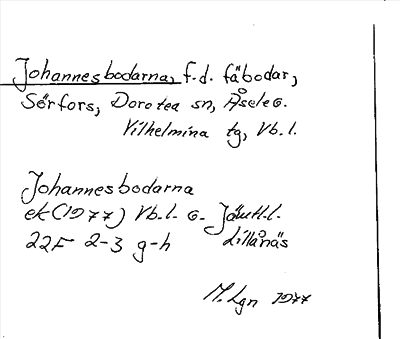 Johannesbodarna, f.d. fäbodar,
Sörfors, Dorotea sn, Åsele o.
Vilhelmina tg, Vb. l.
Johannesbodarna
ek (1977) Vb. l. o. Jämtl. l.
22F 2-3 g-h Lillånäs
M. Lgn 1977